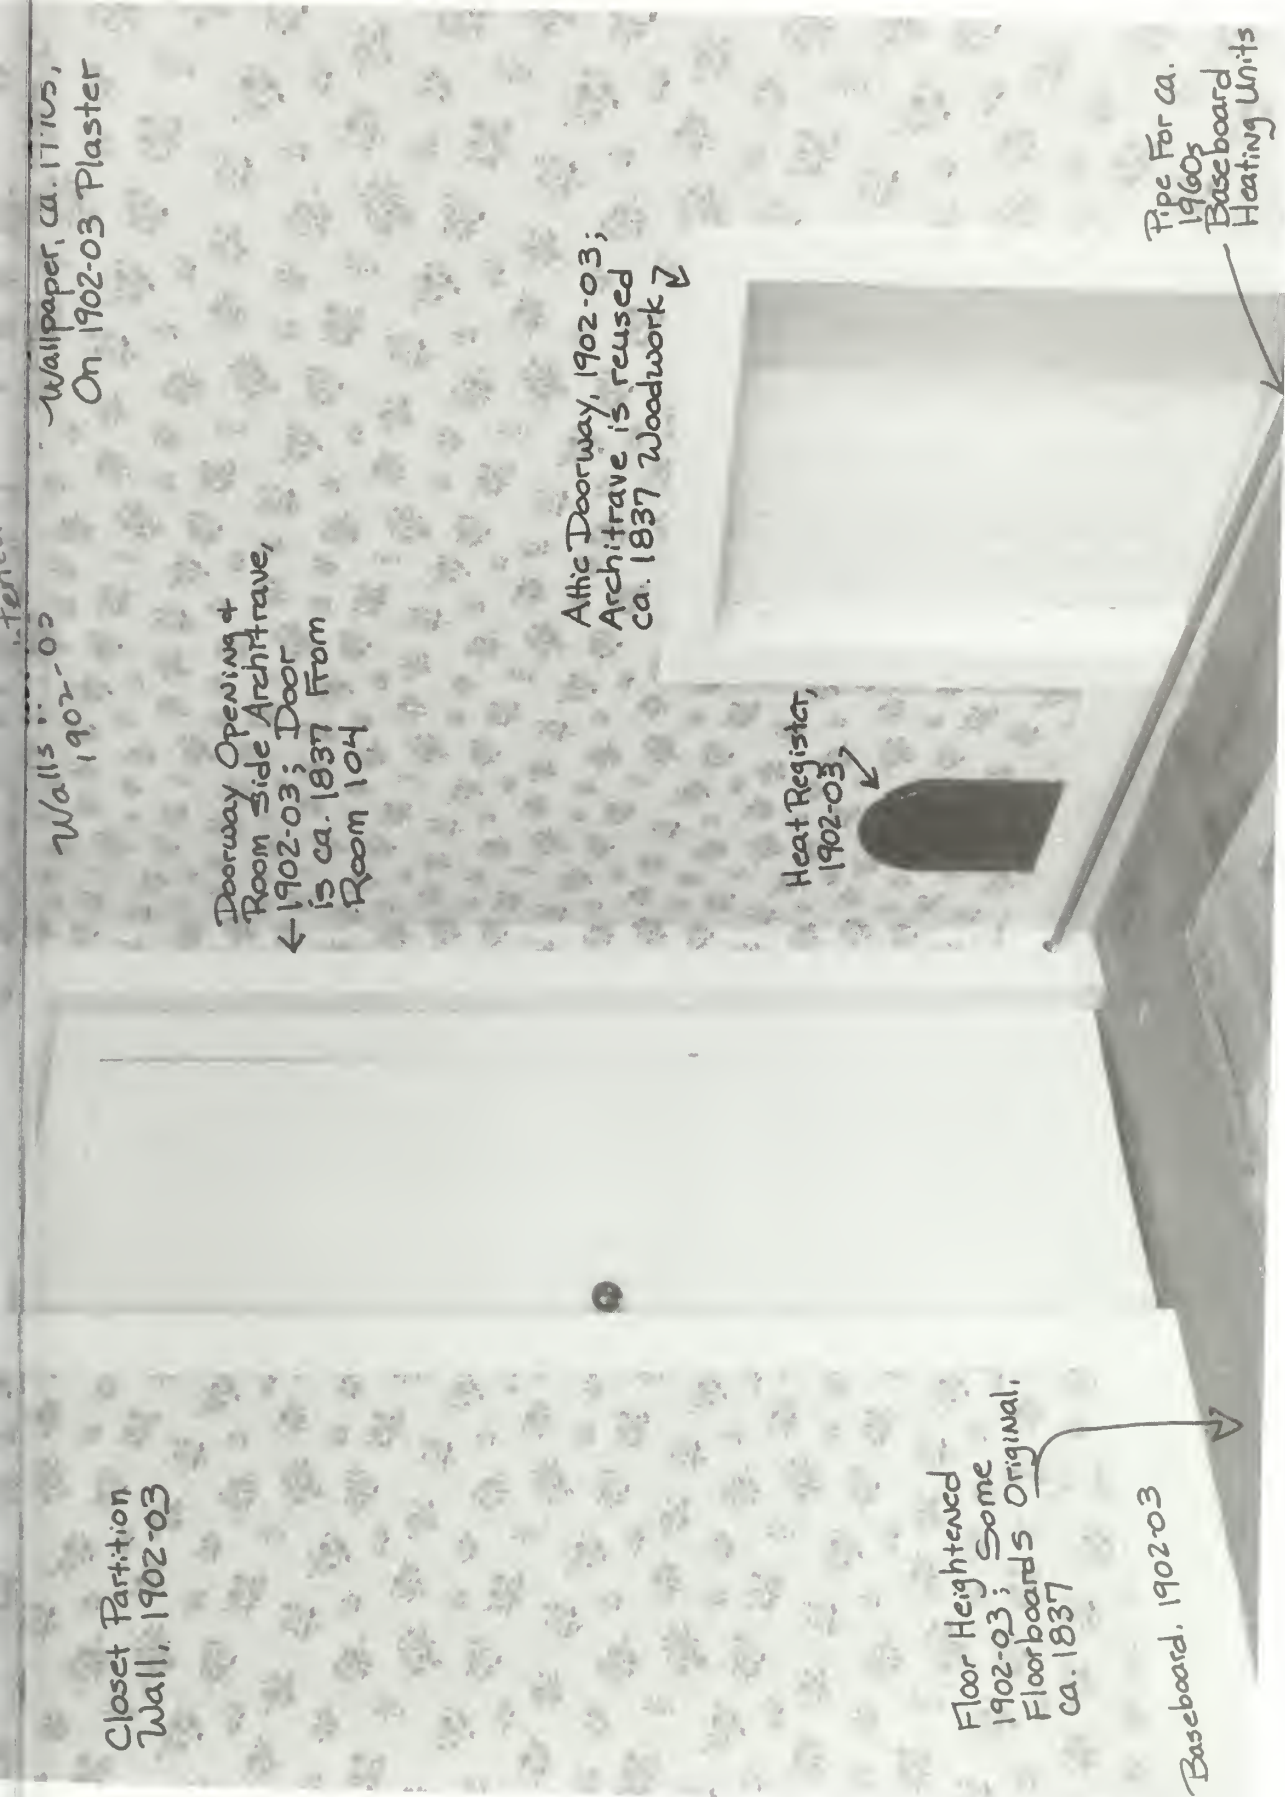 Closet Partition
Wall, 1902-03
Walls
1902-03
Wallpaper, ca.
On 1902-03 Plaster
Doorway Opening +
Room Side Architrave,
1902-03; Door
is ca. 1837 From
Room 104
Attic Doorway, 1902-03;
Architrave is reused
ca. 1837 Woodwork
Heat Register,
1902-03
Floor Heightened
1902-03; Some
Floorboards Original,
ca. 1837
Baseboard, 1902-03
Pipe For ca.
1960s
Baseboard
Heating Units